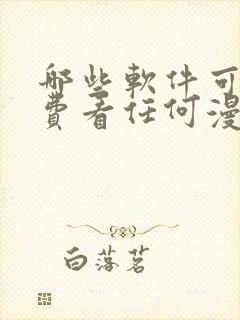 哪些軟件可
費看任何漫
白落茗